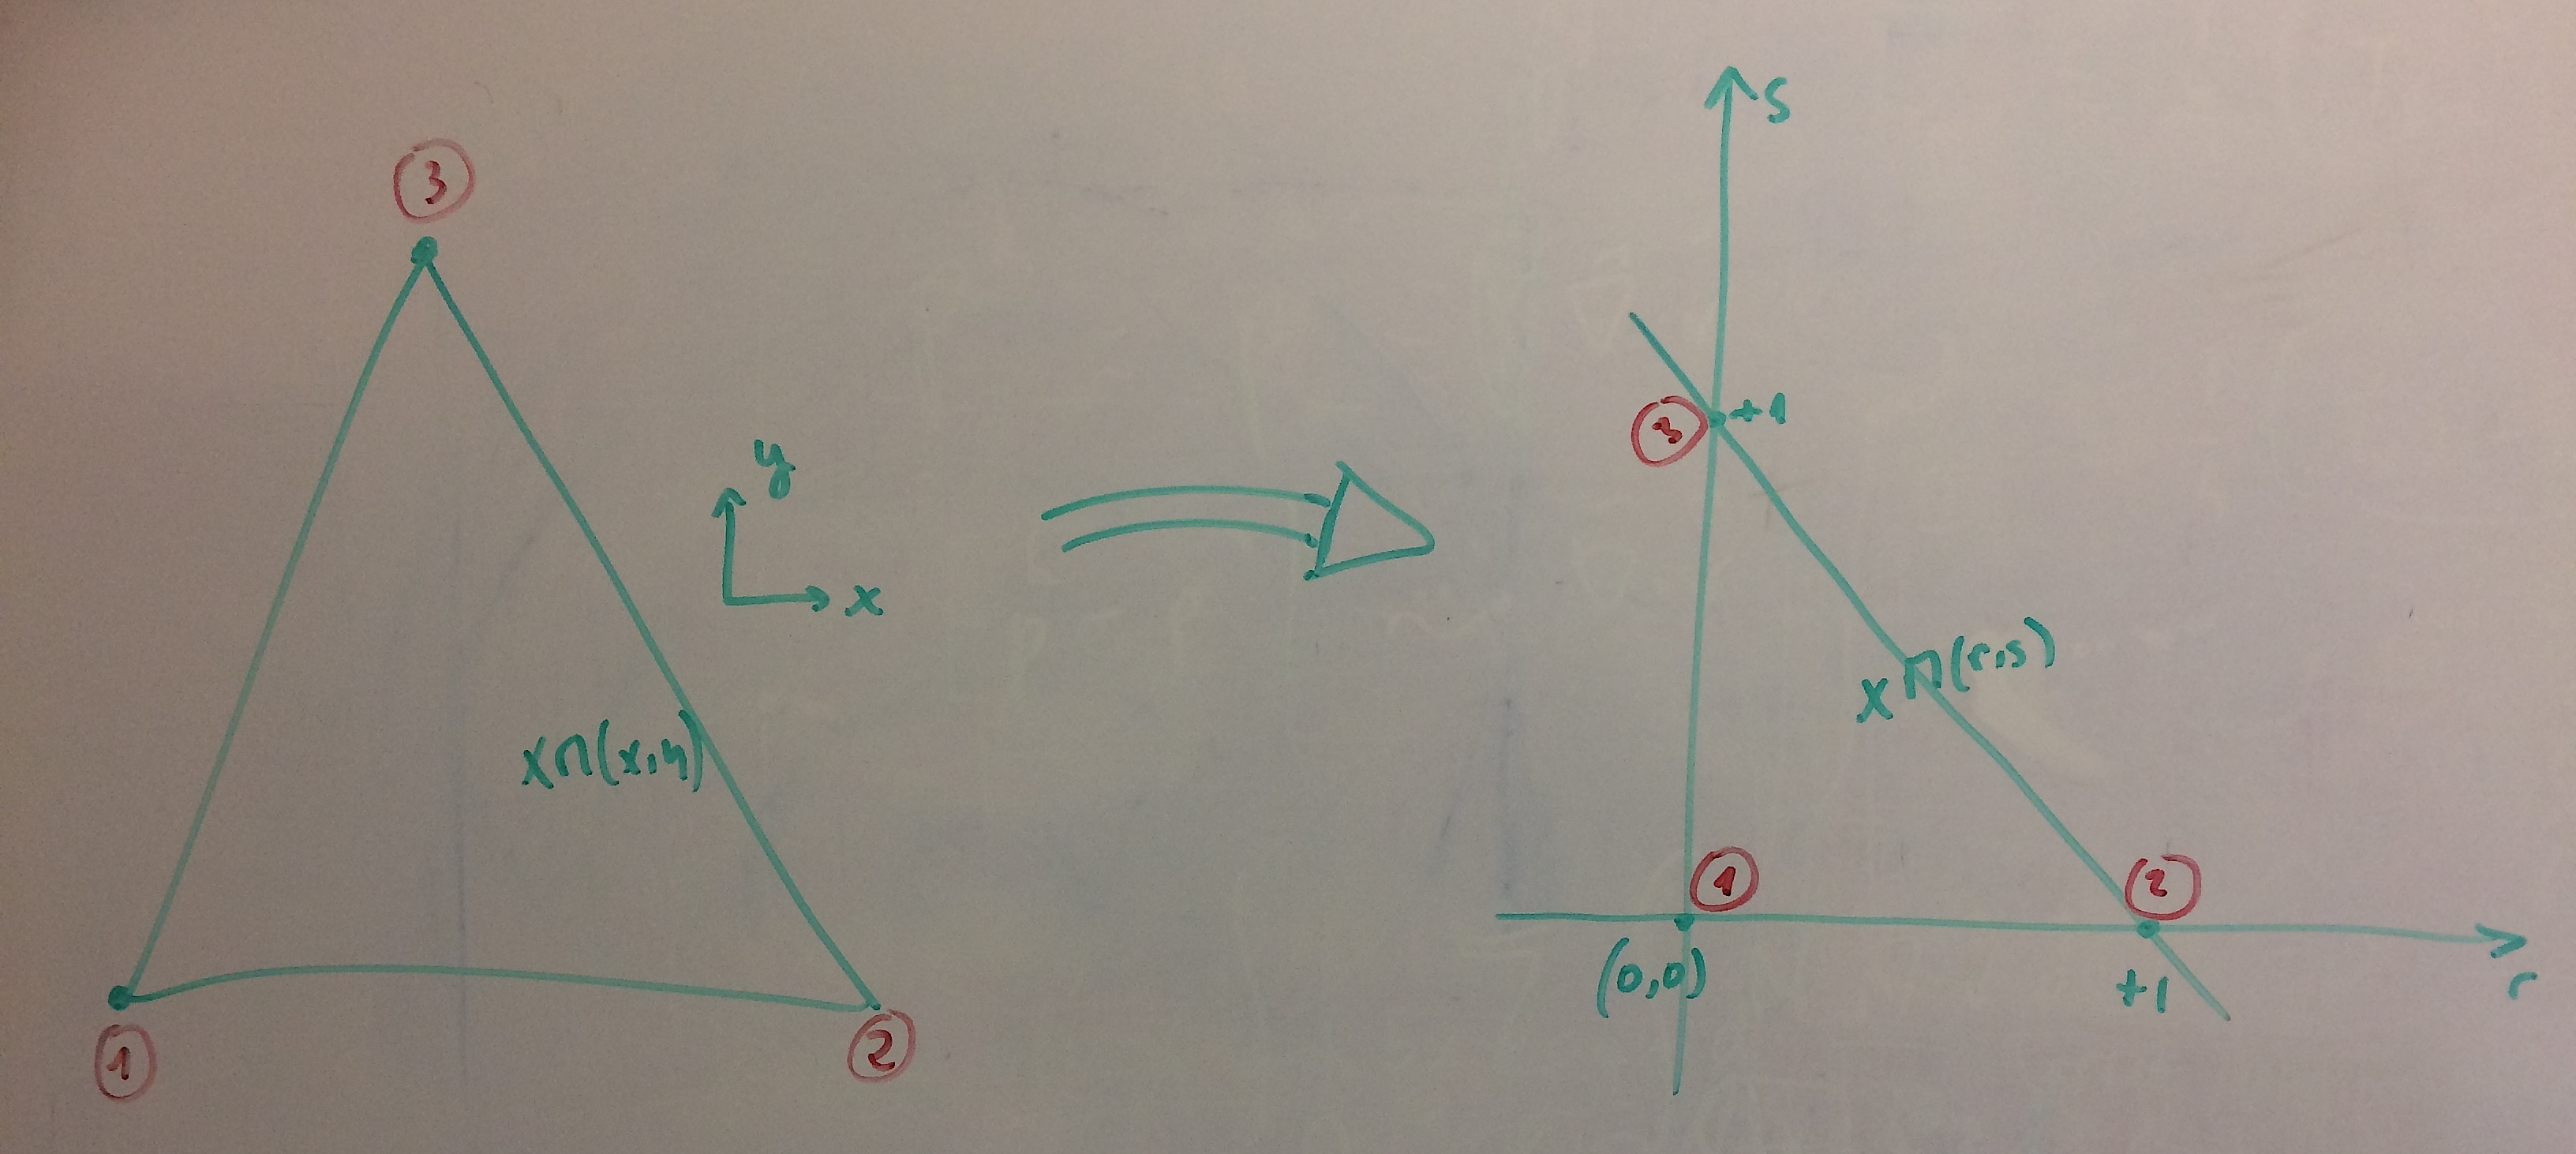 3
y
x
x M(x,y)
1
2
s
3
+1
x M(r,s)
1
2
(0,0)
+1
r